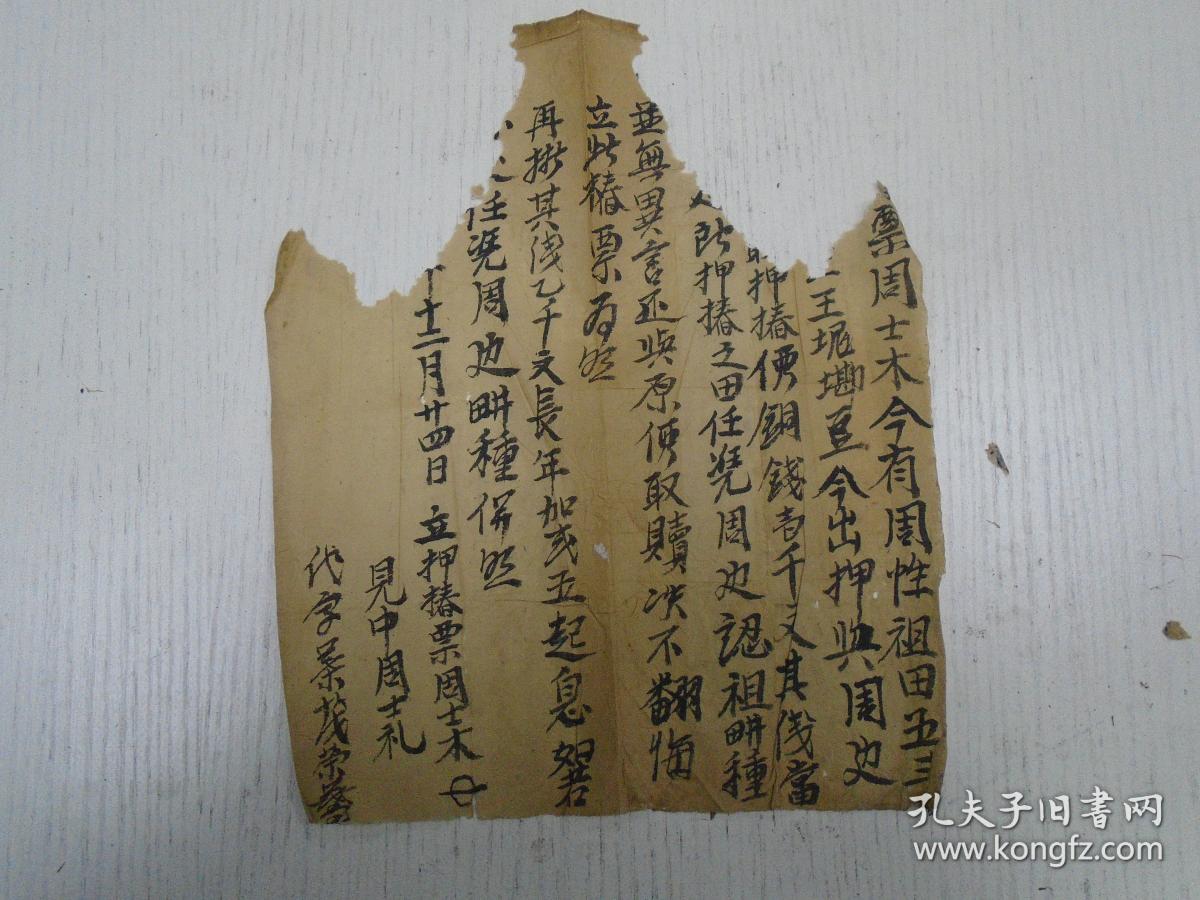 票周士木今有周性祖田五三
王堀墈豆今出押與周边
押椿便銅錢壹千文其伐當
所押椿之田任凭周边認祖畊種
並無異言还與原便取贖决不翻悔
立此椿票为照
再批其伐乙千文長年加弍五起息如若
任凭周边畊種併照
十二月廿四日立押椿票周士木
見中周士礼
代字葉茂荣
孔夫子旧书网
www.kongfz.com